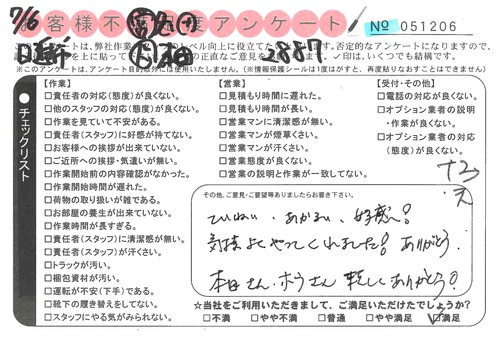 7/6
お客様不満足度アンケート
№ 051206
2887
このアンケートは、弊社作業
レベル向上に役立てたい
す。否定的なアンケートになりますので、
上に貼って
の正直なご意見を
い。✓印は、いくつでも結構です。
※このアンケートは、アンケート目的以外には使用いたしません。(※情報保護シールは1度はがすと、再度貼りなおすことはできません)
チェックリスト
【作業】
□責任者の対応(態度)が良くない。
□他のスタッフの対応(態度)が良くない。
□作業を見ていて不安がある。
□責任者(スタッフ)に好感が持てない。
□お客様への挨拶が出来ていない。
□ご近所への挨拶・気遣いが無い。
□作業開始前の内容確認がなかった。
□作業開始時間が遅れた。
□荷物の取り扱いが雑である。
□お部屋の養生が出来ていない。
□作業時間が長すぎる。
□責任者(スタッフ)に清潔感が無い。
□責任者(スタッフ)が汗くさい。
□トラックが汚い。
□梱包資材が汚い。
□運転が不安(下手)である。
□靴下の履き替えをしてない。
□スタッフにやる気がみられない。
【営業】
□見積もり時間に遅れた。
□見積もり時間が長い。
□営業マンに清潔感が無い。
□営業マンが煙草くさい。
□営業マンが汗くさい。
□営業態度が良くない。
□営業の説明と作業が一致してない。
【受付・その他】
□電話の対応が良くない。
□オプション業者の説明
・作業が良くない。
□オプション業者の対応
(態度)が良くない。
その他、ご意見・ご要望等ありましたらお書き下さい。
ていねい、あかるい、好感へ!
気持よくやってくれました! ありがとう、
本田さん、ホウさん 試してありがとう!
☆当社をご利用いただきまして、ご満足いただけたでしょうか?
□不満 □やや不満 □普通 □やや満足 ☑満足